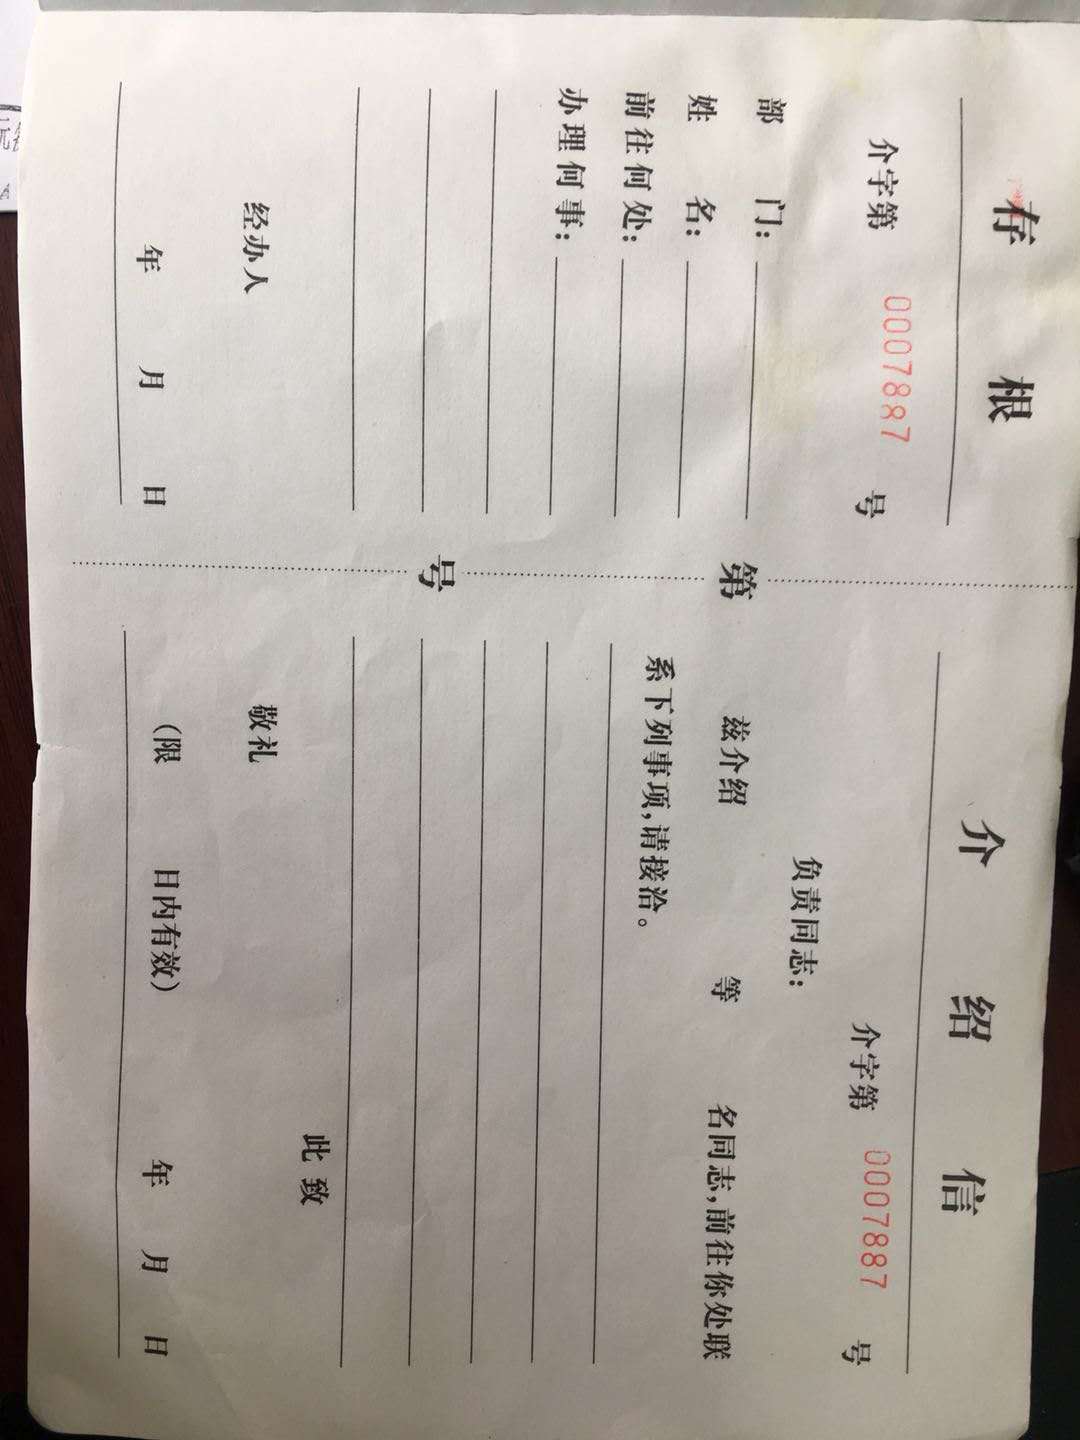 存 根
介字第 0007887 号
部 门：
姓 名：
前往何处：
办理何事：
经办人
年 月 日
第 号
介 绍 信
介字第 0007887 号
负责同志：
兹介绍 等 名同志，前往你处联
系下列事项，请接洽。
此致
敬礼
（限 日内有效） 年 月 日